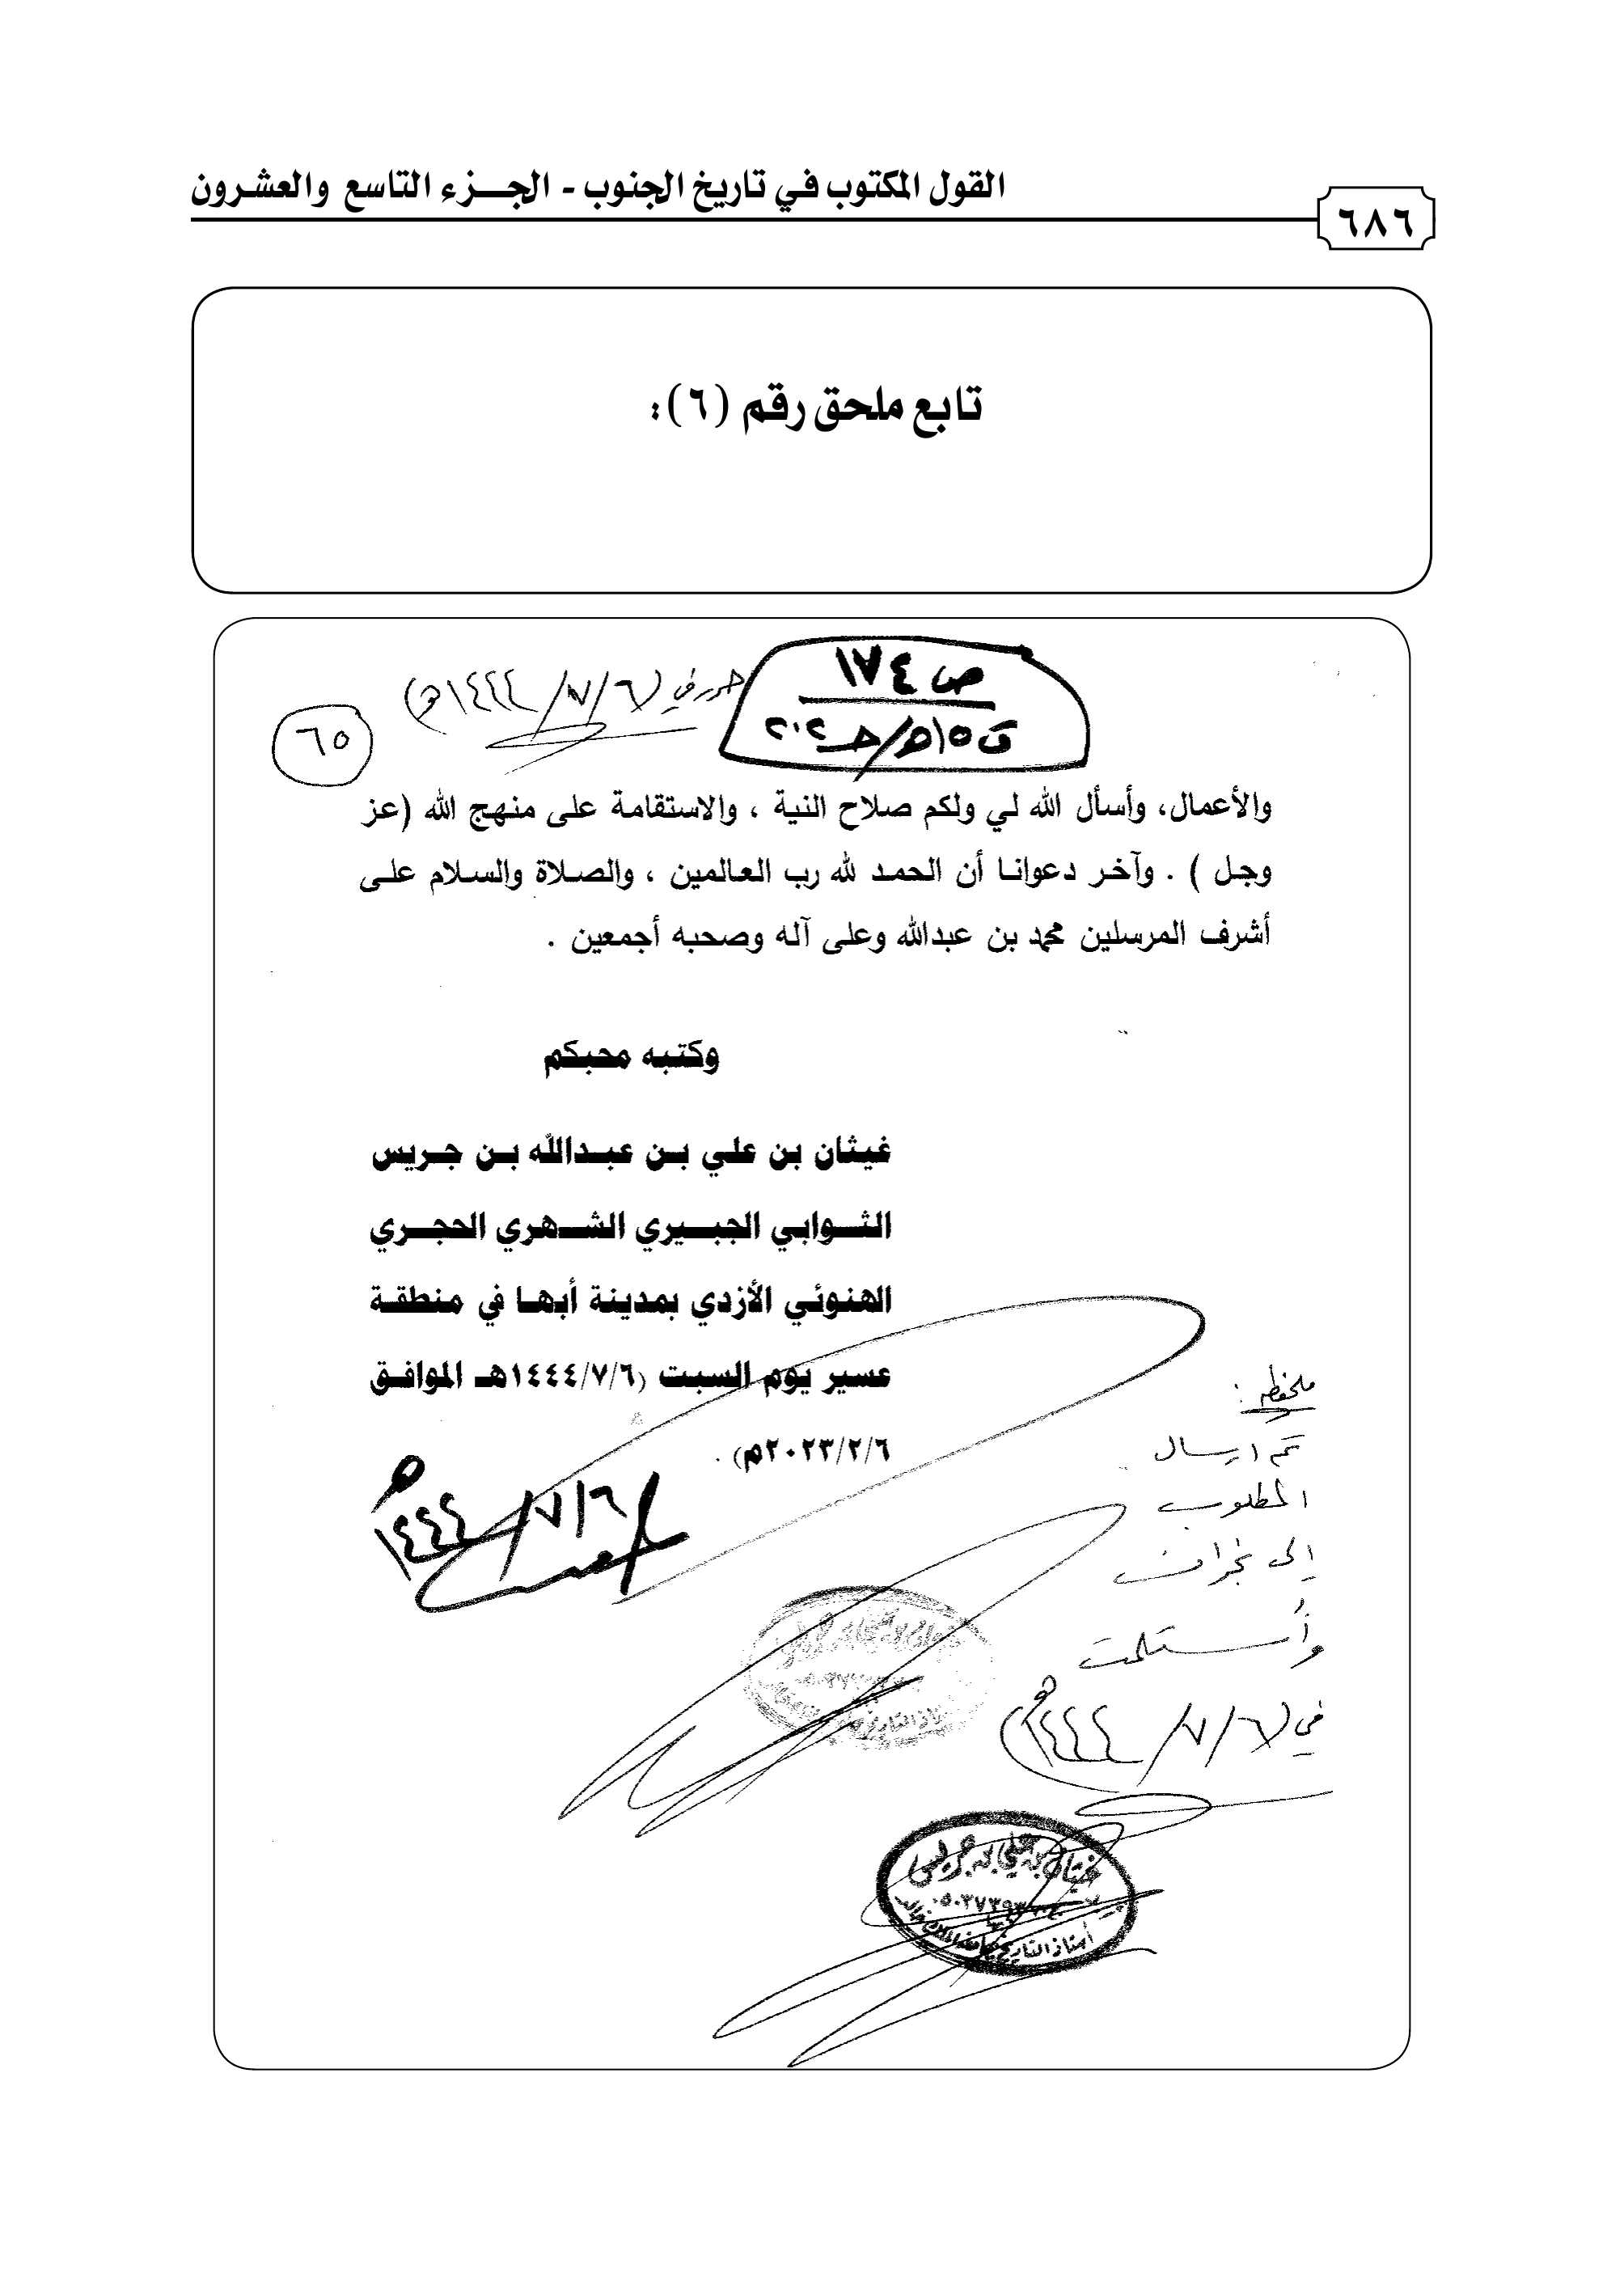 القول المكتوب في تاريخ الجنوب - الجزء التاسع والعشرون
٦٨٦
تابع ملحق رقم (٦):
ص ١٧٤
ق ١٥هـ/جـ ٢٠٢
حرر في (٦/٧/١٤٤٤هـ)
٦٥
والأعمال، وأسأل الله لي ولكم صلاح النية ، والاستقامة على منهج الله (عز
وجل ) . وآخر دعوانا أن الحمد لله رب العالمين ، والصلاة والسلام على
أشرف المرسلين محمد بن عبدالله وعلى آله وصحبه أجمعين .
وكتبه محبكم
غيثان بن علي بن عبدالله بن جريس
الثوابي الجبيري الشهري الحجري
الهنوئي الأزدي بمدينة أبها في منطقة
عسير يوم السبت (١٤٤٤/٧/٦هـ الموافق
٢٠٢٣/٢/٦م) .
٦/٧/١٤٤٤هـ
ملحظه :
تم ارسال
المطلوب
إلى نجران
وأستلمت
في (٦/٧/١٤٤٤هـ)
غيثان بن علي بن جريس
أستاذ التاريخ بجامعة الملك خالد